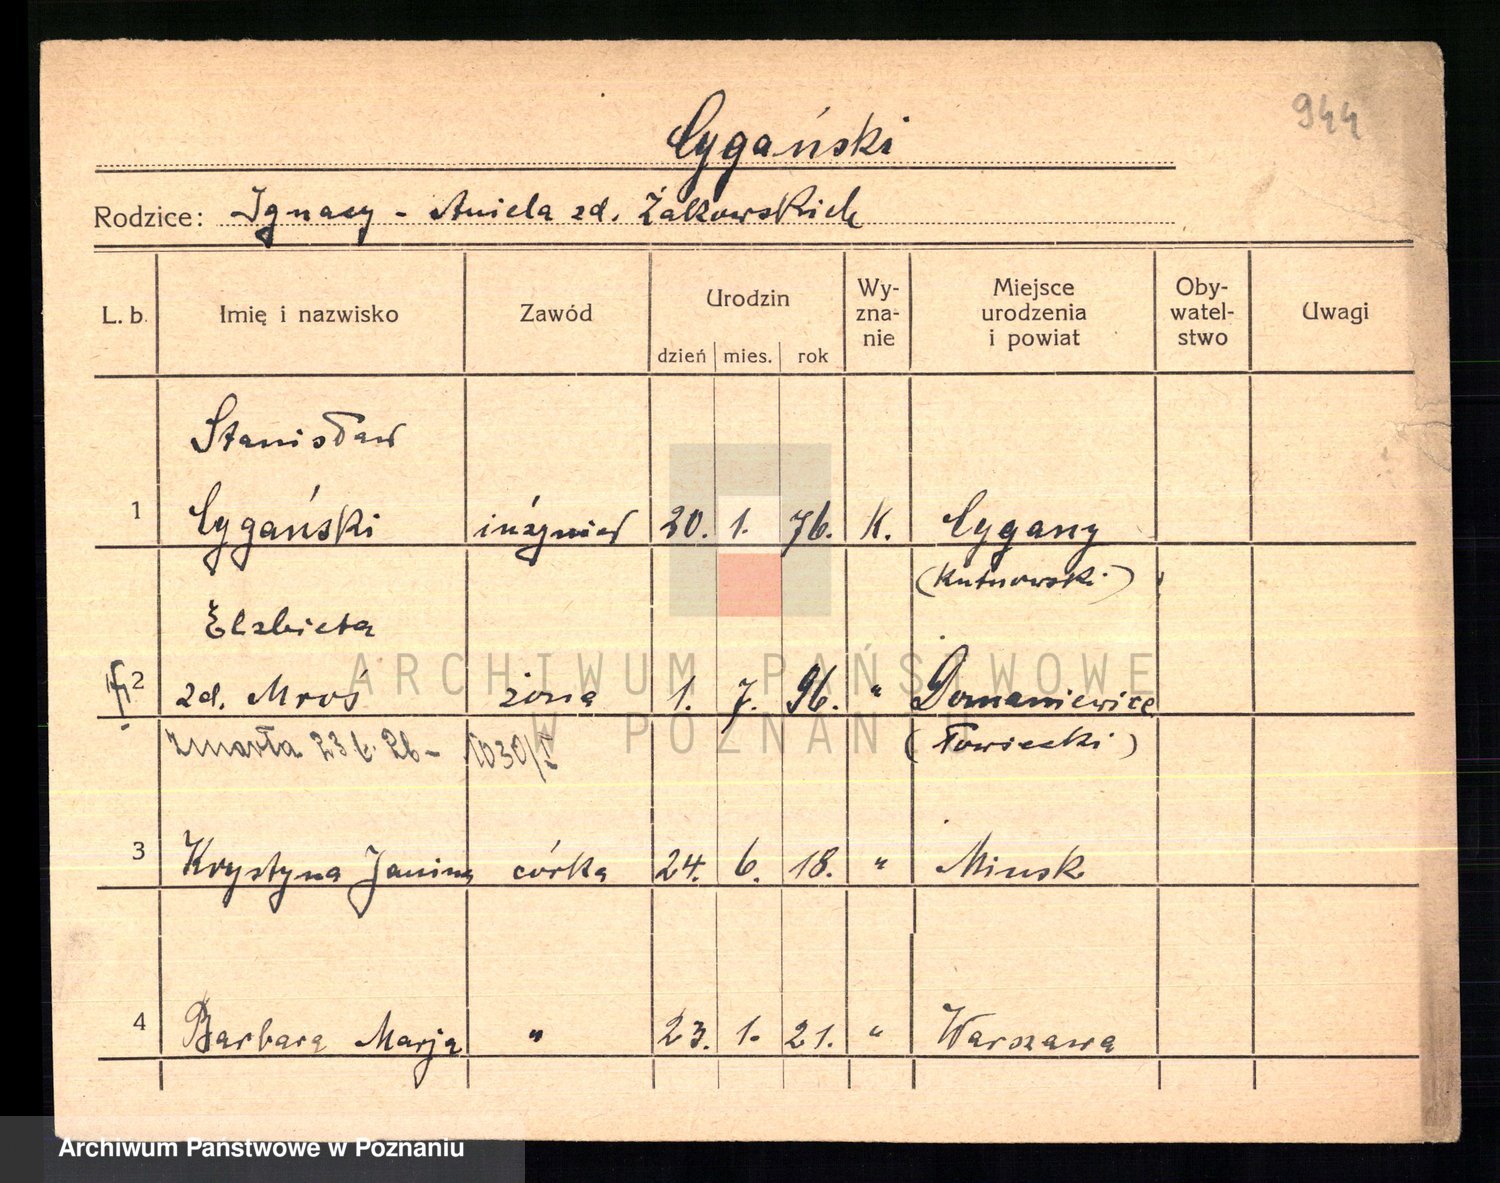 944
Cygański
Rodzice: Ignacy - Aniela zd. Żakowskich
L. b. Imię i nazwisko Zawód Urodzin dzień mies. rok Wy-zna-nie Miejsce urodzenia i powiat Oby-watel-stwo Uwagi
Stanisław
1 Cygański inżynier 20. 1. 76. K. Cygany
(Kutnowski)
Elzbieta
2 zd. Mroś żona 1. 7. 96. " Domaniewice
zmarła 23 6. 26 - 1030/I (Łowiecki)
3 Krystyna Janina córka 24. 6. 18. " Minsk
4 Barbara Marja " 23. 1. 21. " Warszawa
ARCHIWUM PAŃSTWOWE
W POZNANIU
Archiwum Państwowe w Poznaniu